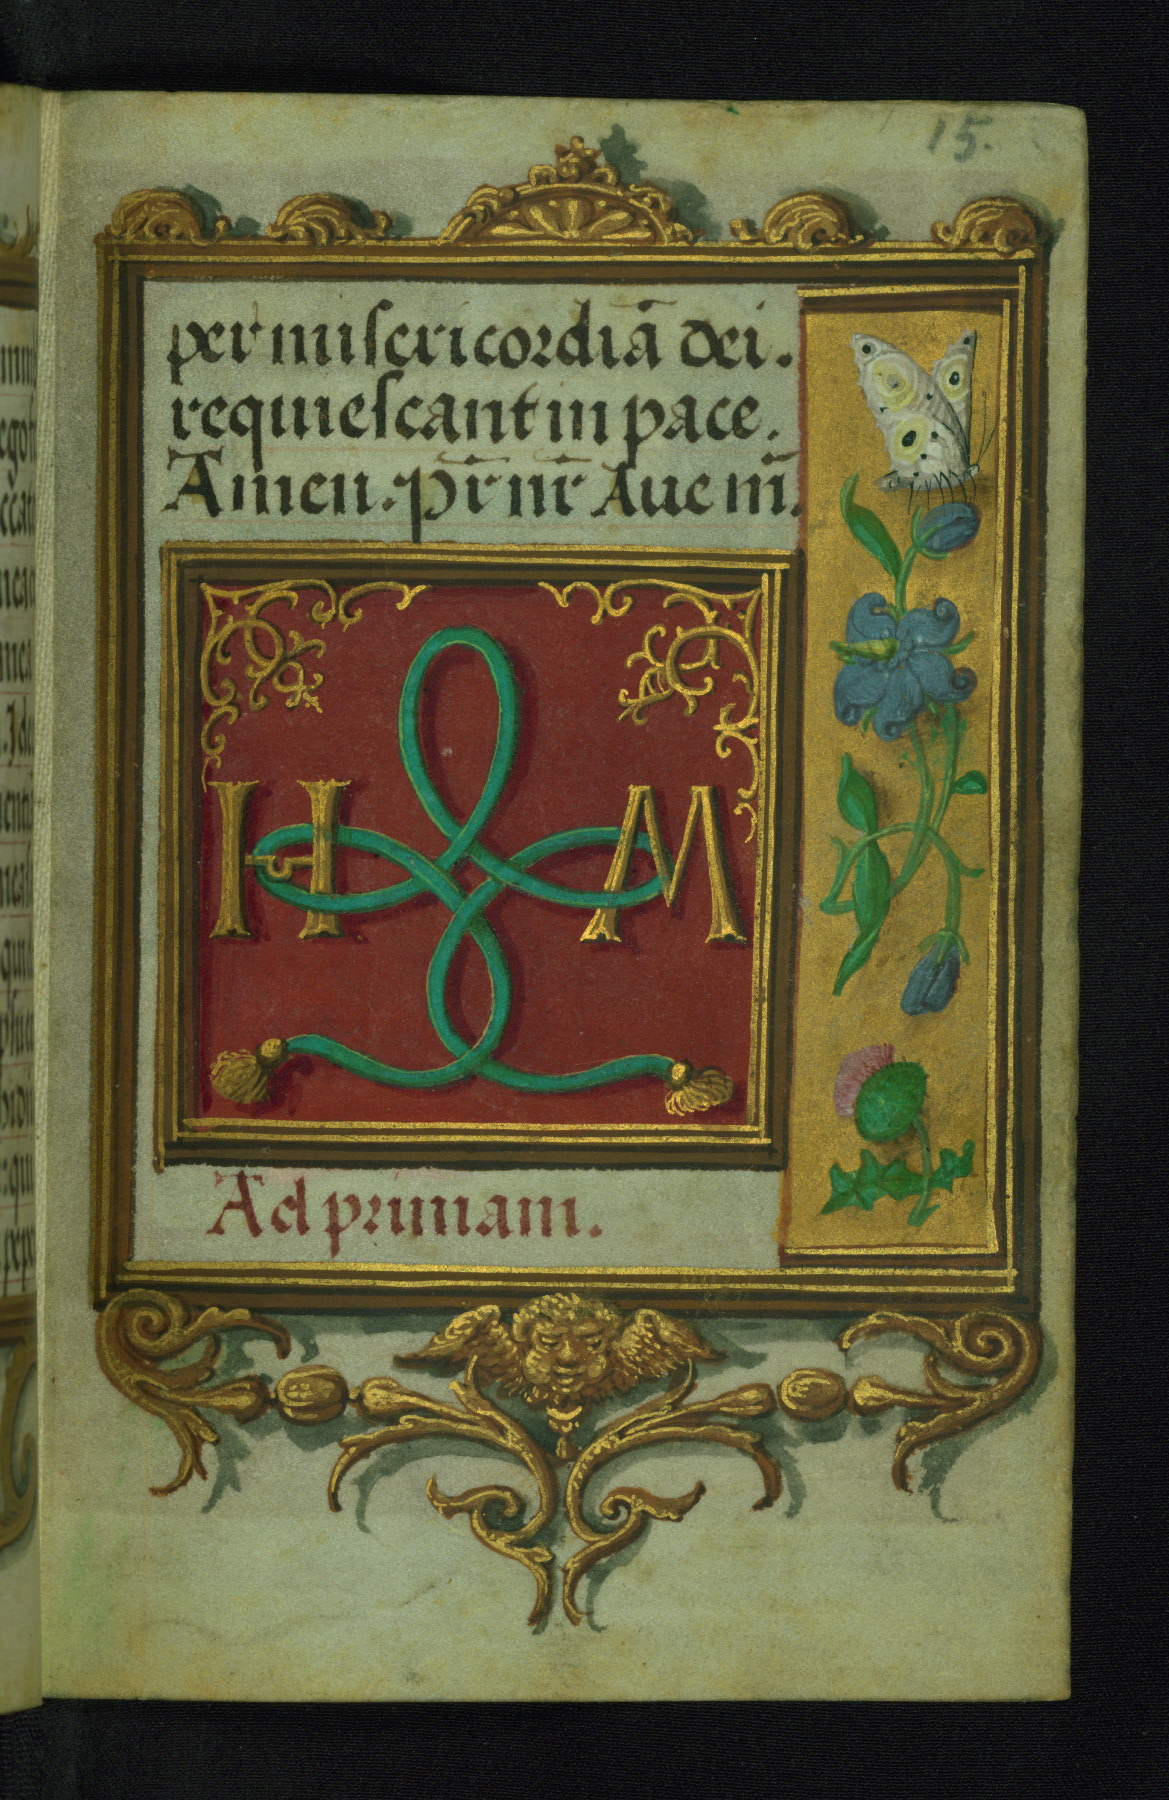 15.
per misericordiā dei.
requiescant in pace.
Amen. pr̄ nr̄ Aue m̄.
H M
Ad primam.